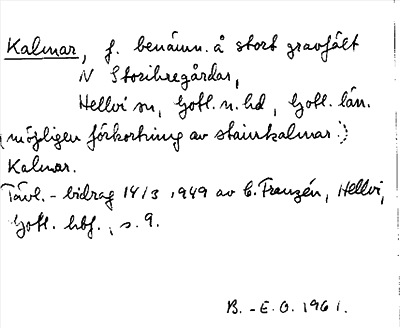 Kalmar, f. benämn. å stort gravfält
N Storihregårdar,
Hellvi sn, Gotl. n. hd, Gotl. län.
(möjligen förkortning av stainkalmar.)
Kalmar.
Tävl. - bidrag 14/3 1949 av C. Franzén, Hellvi,
Gotl. hbf., s. 9.
B. - E. O. 1961.